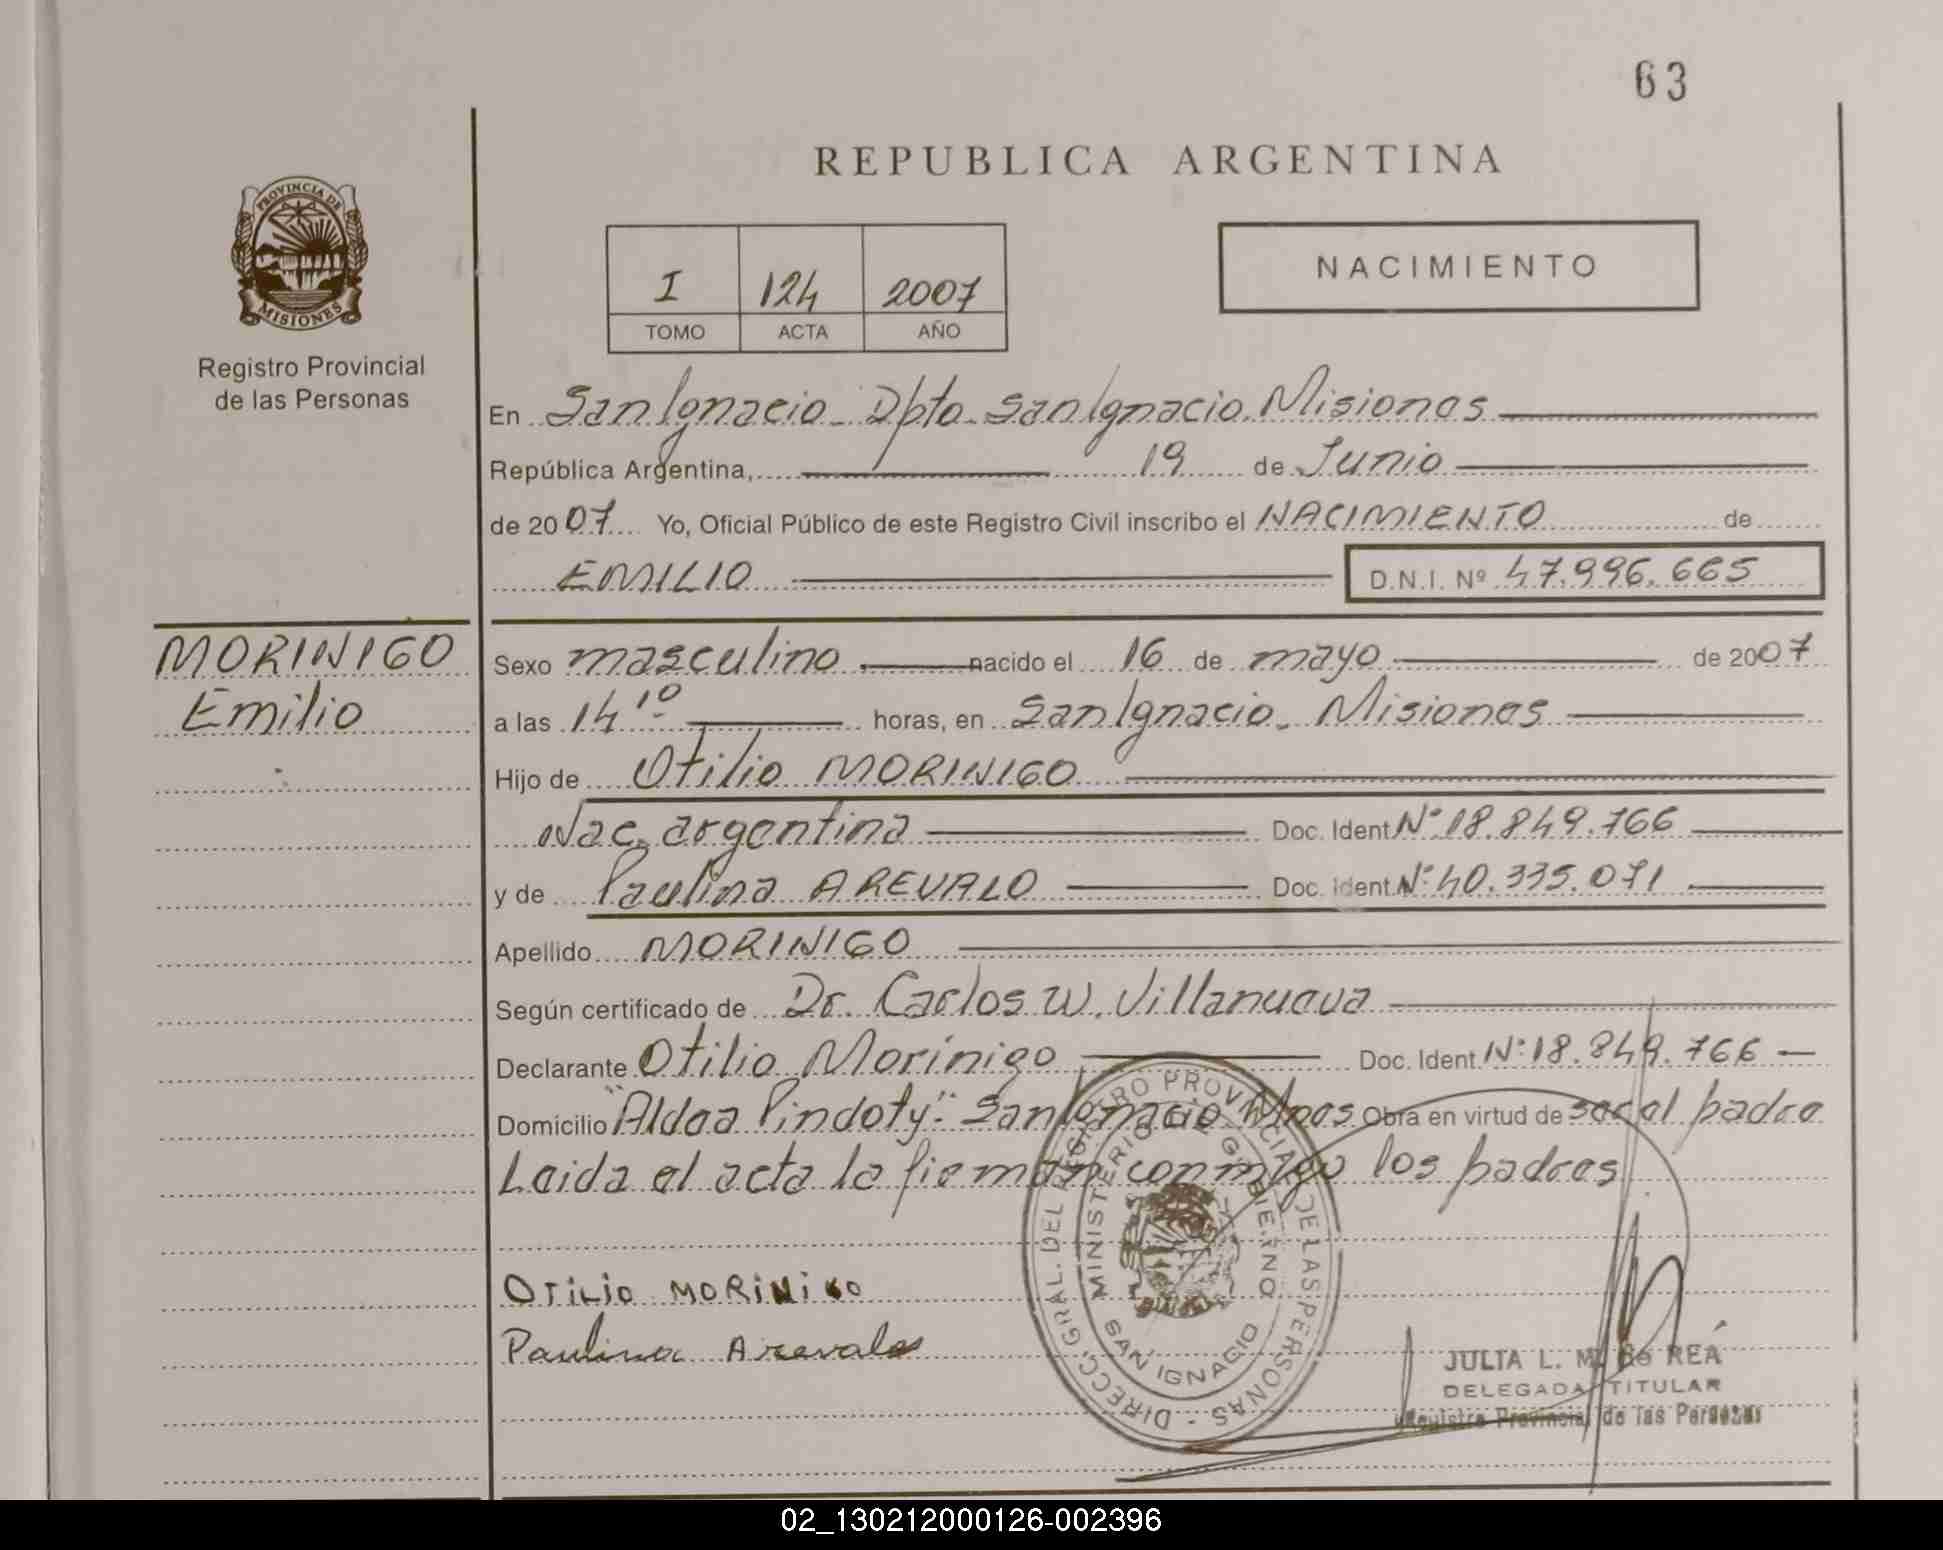 63
REPUBLICA ARGENTINA
PROVINCIA DE
MISIONES
Registro Provincial
de las Personas
I 124 2007
TOMO ACTA AÑO
NACIMIENTO
En San Ignacio - Dpto. San Ignacio. Misiones
República Argentina, 19 de Junio
de 2007 Yo, Oficial Público de este Registro Civil inscribo el NACIMIENTO de
EMILIO D.N.I. Nº 47.996.665
MORINIGO
Emilio
Sexo masculino nacido el 16 de mayo de 2007
a las 14 10 horas, en San Ignacio - Misiones
Hijo de Otilio MORINIGO
Nac. argentina Doc. Ident. Nº 18.849.766
y de Paulina AREVALO Doc. Ident. Nº 40.335.071
Apellido MORINIGO
Según certificado de Dr. Carlos W. Villanueva
Declarante Otilio Morinigo Doc. Ident. Nº 18.849.766
Domicilio "Aldea Pindoty" San Ignacio Mnes Obra en virtud de ser el padre
Leida el acta la firman conmigo los padres
OTiLio MORiNiGo
Paulina Arevalo
DIRECC. GRAL. DEL REGISTRO PROVINCIAL DE LAS PERSONAS -
MINISTERIO DE GOBIERNO
SAN IGNACIO
JULIA L. M. de REÁ
DELEGADA TITULAR
Registro Provincial de las Personas
02_130212000126-002396